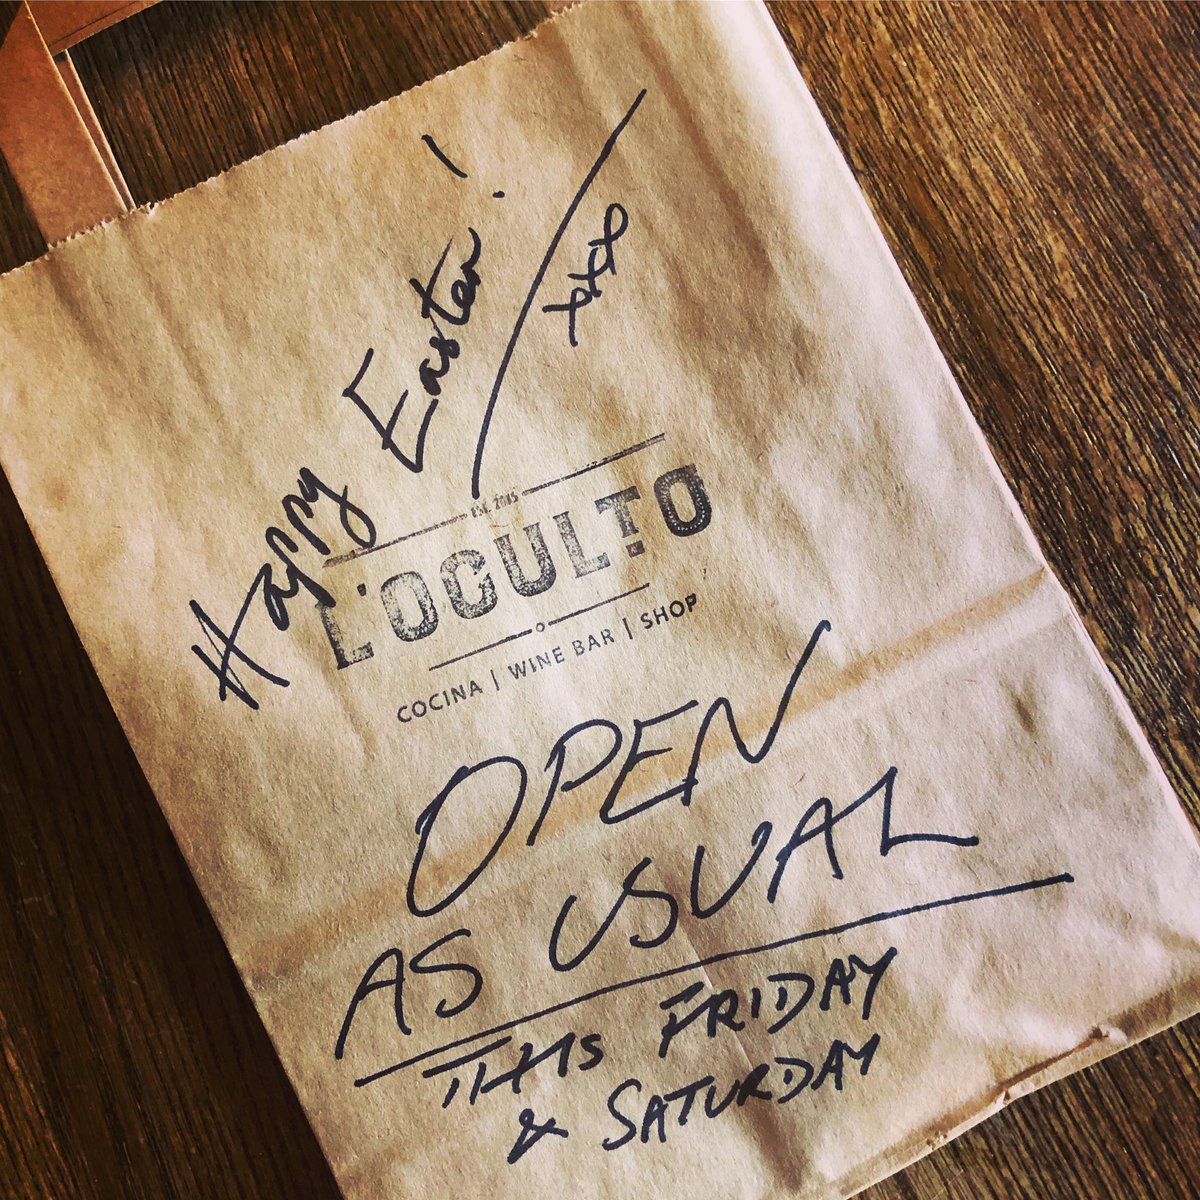 Happy Easter!
xxx
EST. 2015
L'OCULTO
COCINA | WINE BAR | SHOP
OPEN
AS USUAL
THIS FRIDAY
& SATURDAY